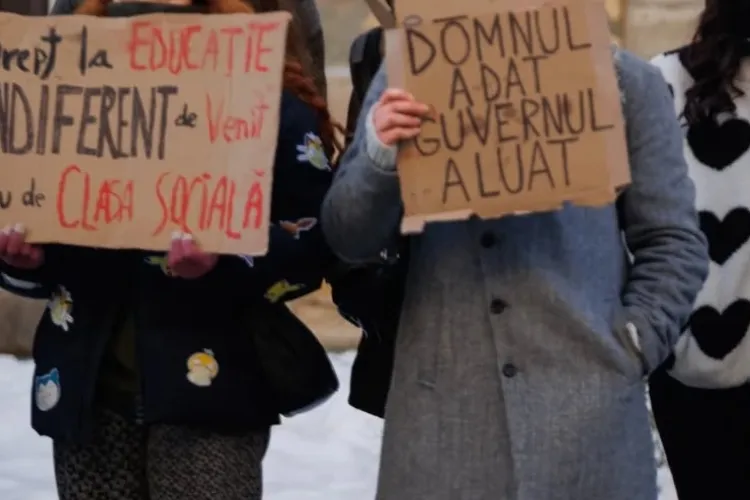 Drept la EDUCAȚIE
NDIFERENT de Venit
u de CLASA SOCIALĂ
DOMNUL
A DAT
GUVERNUL
A LUAT